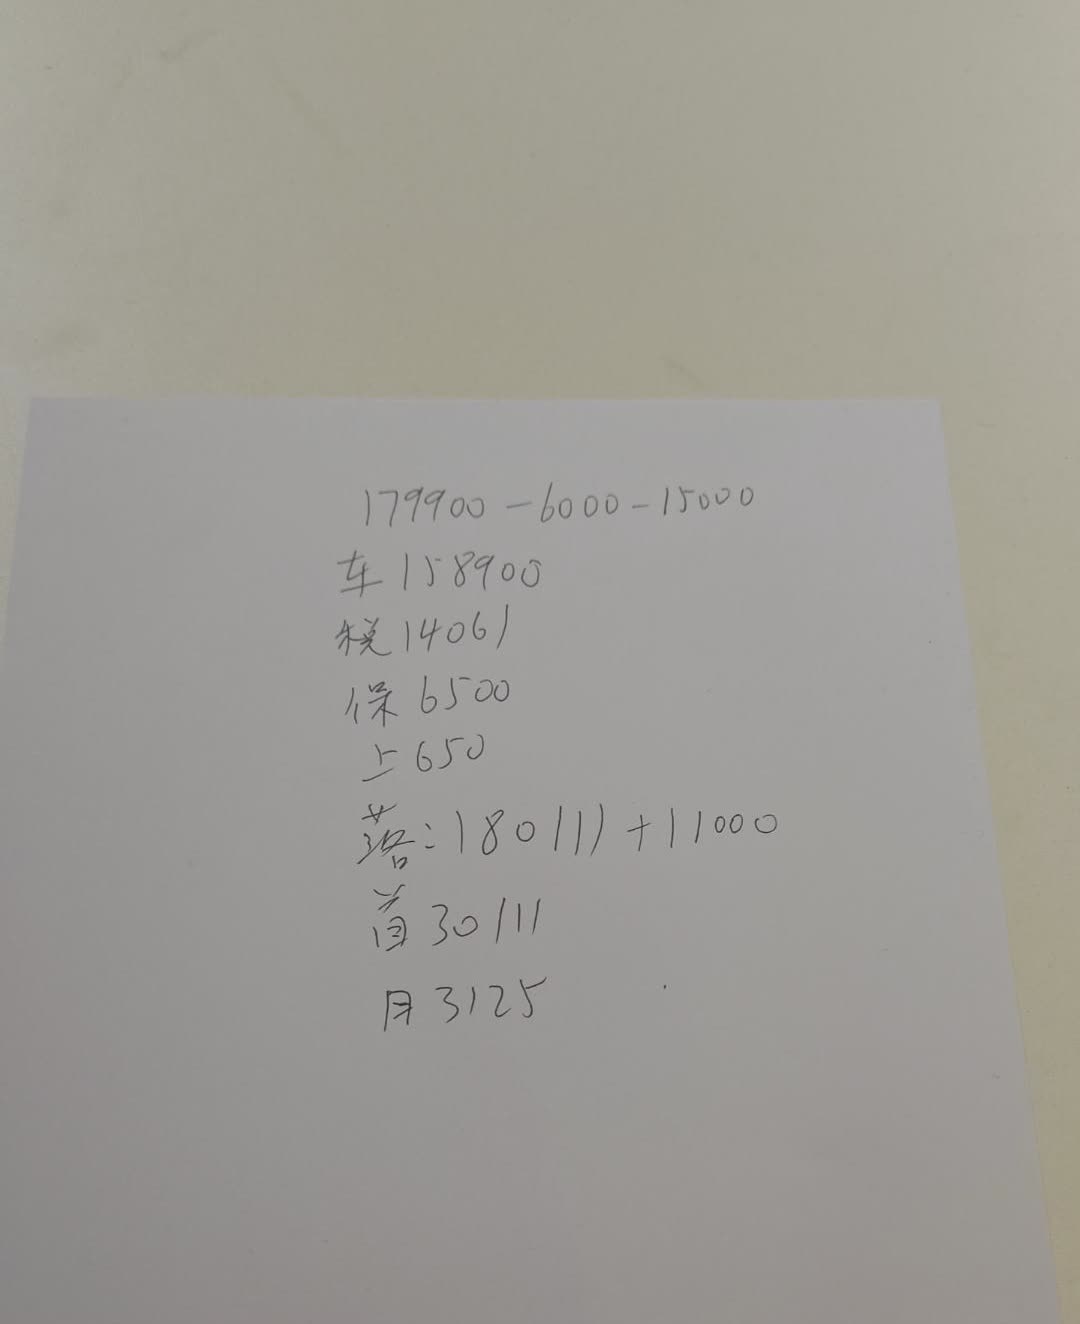 179900-6000-15000
车158900
税14061
保6500
上650
落:180111+11000
首30111
月3125